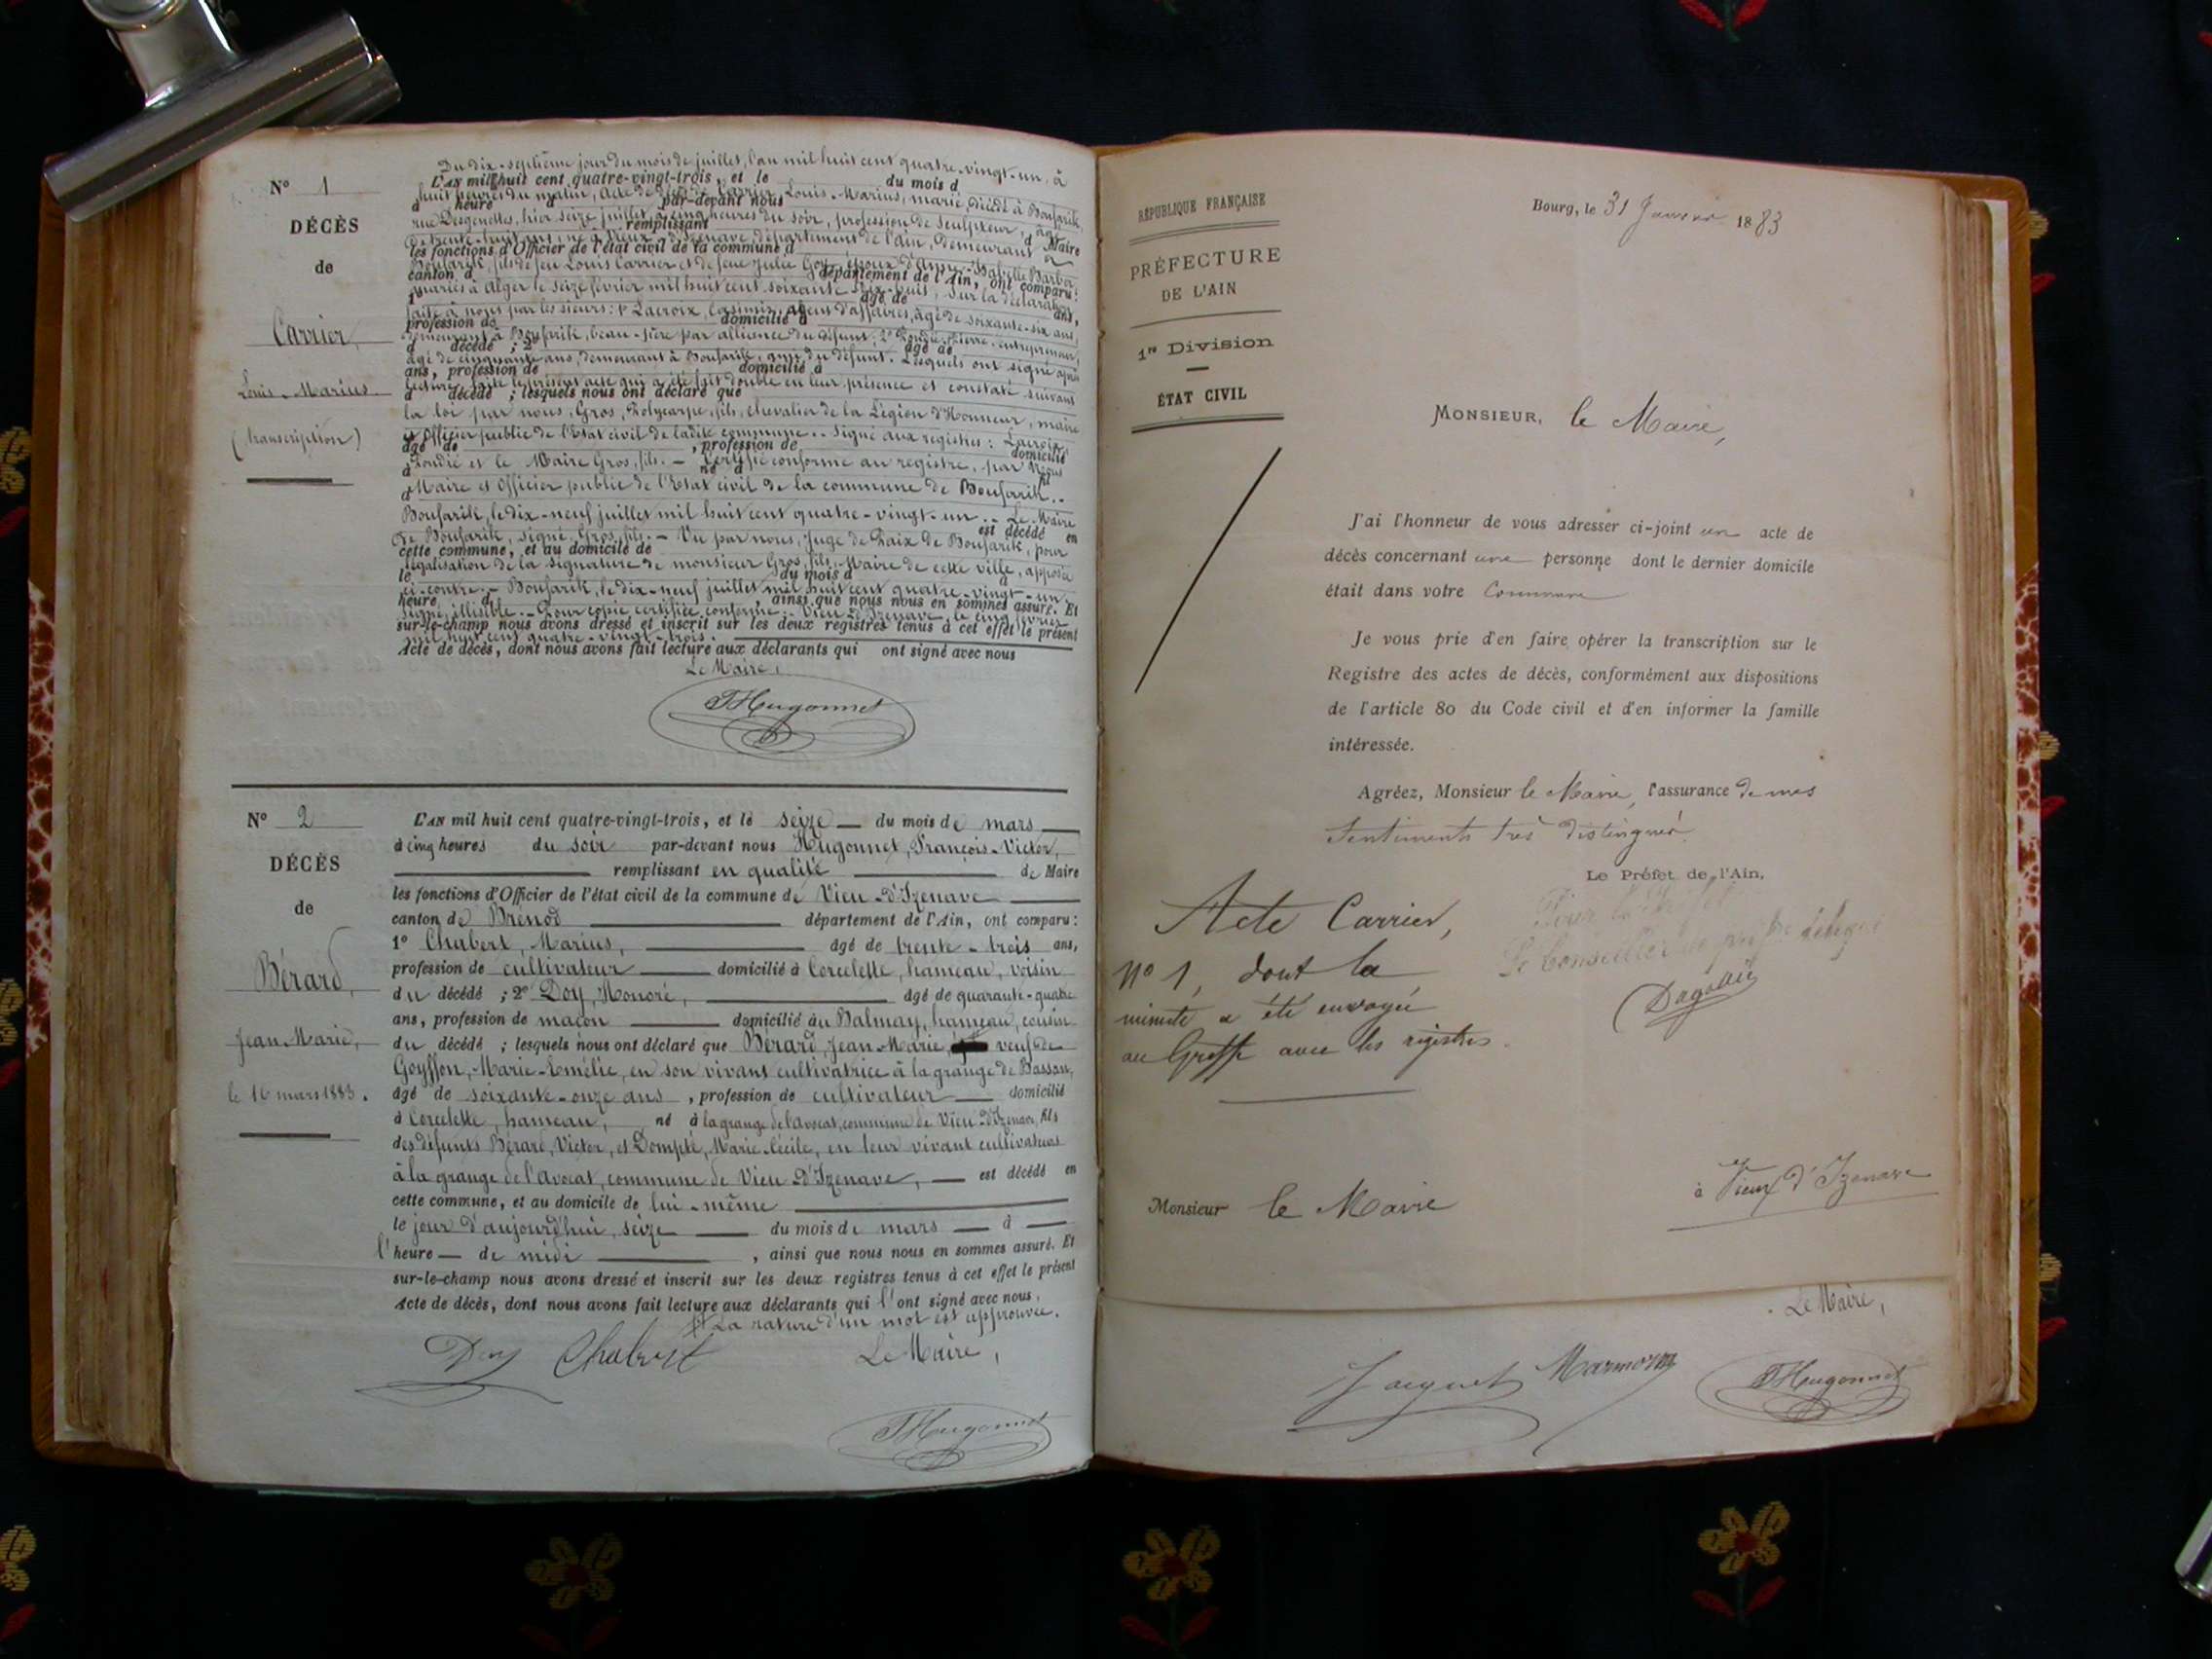 N° 1
DÉCÈS
de
Carrier,
Louis-Marius
(transcription)
Du dix-septième jour du mois de juillet, l'an mil huit cent quatre-vingt-un, à
L'AN mil huit cent quatre-vingt-trois, et le du mois d
huit heures du matin, Acte de décès de Carrier, Louis-Marius, marié, décédé à Boufarik,
à heure par-devant nous
rue Desgenettes, hier seize juillet, à cinq heures du soir, profession de Sculpteur, âgé
remplissant d Maire
de trente-huit ans, né à Vieux-d'Izenave, département de l'Ain, demeurant à
les fonctions d'Officier de l'état civil de la commune d
Boufarik, fils de feu Louis Carrier et de feue Julie Goy, époux d'Anne-Isabelle Barber,
canton d département de l'Ain, ont comparu :
mariés à Alger le seize février mil huit cent soixante-dix-huit, Sur la déclaration
1° âgé de ans,
faite à nous par les sieurs : 1° Lacroix, Casimir, agent d'affaires, âgé de soixante-six ans,
profession de domicilié à
demeurant à Boufarik, beau-père par alliance du défunt, 2° Rondié, Pierre, entrepreneur,
d décédé ; 2° âgé de
âgé de cinquante ans, demeurant à Boufarik, ami du défunt. Lesquels ont signé après
ans, profession de domicilié à
lecture faite le présent acte qui a été fait double en leur présence et constaté suivant
d décédé ; lesquels nous ont déclaré que
la loi par nous, Gros, Polycarpe, fils, chevalier de la Légion d'Honneur, maire
et Officier public de l'Etat civil de ladite commune. - Signé aux registres : Lacroix,
âgé de , profession de domicilié
Rondié et le Maire Gros, fils. - Certifié conforme au registre, par Nous
à né à fil
Maire et Officier public de l'Etat civil de la commune de Boufarik. -
d
Boufarik, le dix-neuf juillet mil huit cent quatre-vingt-un. - Le Maire
est décédé en
de Boufarik, signé Gros, fils. - Vu par nous, Juge de Paix de Boufarik, pour
cette commune, et au domicile de
légalisation de la signature de monsieur Gros, fils, Maire de cette ville, apposée
le du mois d
ci-contre. - Boufarik, le dix-neuf juillet mil huit cent quatre-vingt-un.
heure d , ainsi que nous nous en sommes assuré. Et
Signé illisible. - Pour copie certifiée conforme. - Vieu-d'Izenave, le cinq février
sur-le-champ nous avons dressé et inscrit sur les deux registres tenus à cet effet le présent
mil huit cent quatre-vingt-trois.
Acte de décès, dont nous avons fait lecture aux déclarants qui ont signé avec nous
Le Maire,
FHugonnet
N° 2
DÉCÈS
de
Bérard,
Jean-Marie,
le 16 mars 1883.
L'AN mil huit cent quatre-vingt-trois, et le seize du mois de mars
à cinq heures du soir par-devant nous Hugonnet, François-Victor,
remplissant en qualité de Maire
les fonctions d'Officier de l'état civil de la commune de Vieu-d'Izenave
canton de Brénod département de l'Ain, ont comparu :
1° Chabert, Marius, âgé de trente-trois ans,
profession de cultivateur domicilié à Corcelette, hameau, voisin
du décédé ; 2° Doy, Honoré, âgé de quarante-quatre
ans, profession de maçon domicilié au Balmay, hameau, cousin
du décédé ; lesquels nous ont déclaré que Bérard, Jean-Marie, veuf de
Goyffon, Marie-Emélie, en son vivant cultivatrice à la grange de Bassan,
âgé de soixante-onze ans , profession de cultivateur domicilié
à Corcelette, hameau, né à la grange de l'avocat, commune de Vieu-d'Izenave, fils
des défunts Bérard, Victor, et Dompté, Marie-Cécile, en leur vivant cultivateurs
à la grange de l'Avocat, commune de Vieu-d'Izenave, est décédé en
cette commune, et au domicile de lui-même
le jour d'aujourd'hui, seize du mois de mars à
l'heure de midi , ainsi que nous nous en sommes assuré. Et
sur-le-champ nous avons dressé et inscrit sur les deux registres tenus à cet effet le présent
Acte de décès, dont nous avons fait lecture aux déclarants qui l'ont signé avec nous.
La rature d'un mot est approuvée.
Doy Chabert Le Maire,
FHugonnet
RÉPUBLIQUE FRANÇAISE
PRÉFECTURE
DE L'AIN
1re Division
ÉTAT CIVIL
Bourg, le 31 Janvier 1883
MONSIEUR, le Maire,
J'ai l'honneur de vous adresser ci-joint un acte de
décès concernant une personne dont le dernier domicile
était dans votre Commune
Je vous prie d'en faire opérer la transcription sur le
Registre des actes de décès, conformément aux dispositions
de l'article 80 du Code civil et d'en informer la famille
intéressée.
Agréez, Monsieur le Maire, l'assurance de mes
Sentiments très distingués.
Le Préfet de l'Ain,
Pour le Préfet
Le Conseiller de préfre délégué
Acte Carrier,
N° 1, dont la
minute a été envoyée
au Greffe avec les registres.
Monsieur le Maire
à Vieux d'Izenave
Le Maire,
Jacquet Marmoron FHugonnet